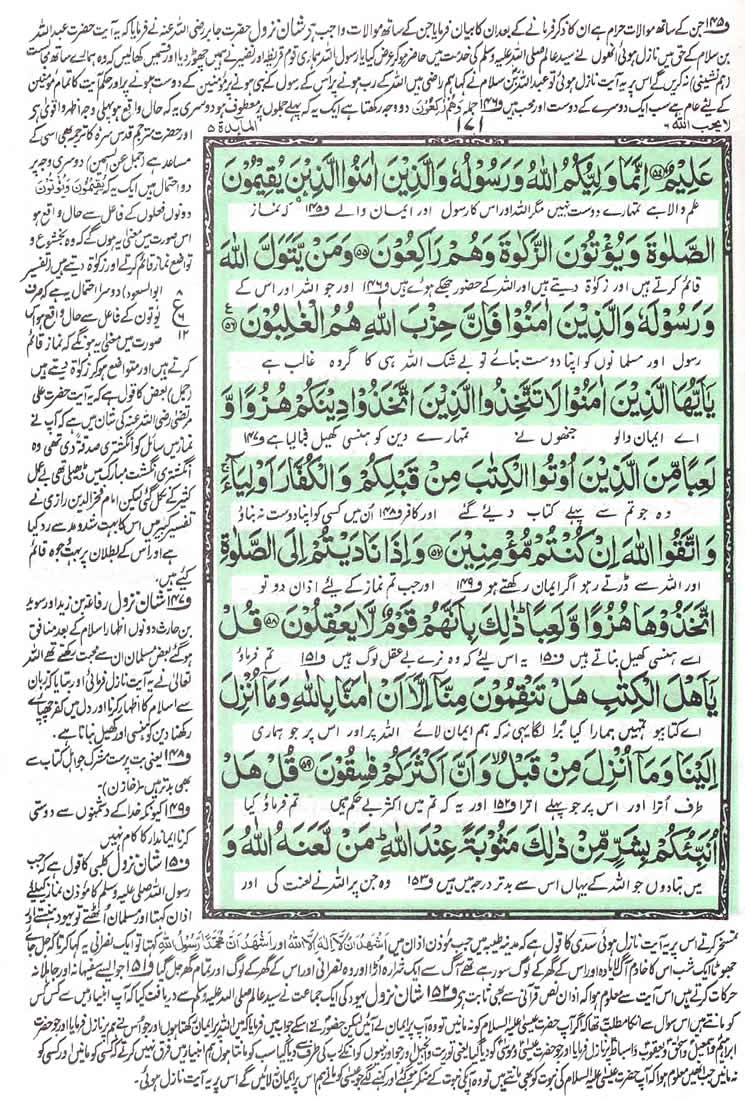 و۱۴۵ جن کے ساتھ موالات حرام ہے ان کا ذکر فرمانے کے بعد ان کا بیان فرمایا جن کے ساتھ موالات واجب ہے شان نزول حضرت جابر رضی اللہ عنہ نے فرمایا کہ یہ آیت حضرت عبداللہ
بن سلام کے حق میں نازل ہوئی انھوں نے سید عالم صلی اللہ علیہ وسلم کی خدمت میں حاضر ہو کر عرض کیا یا رسول اللہ ہماری قوم قریظہ اور نضیر نے ہمیں چھوڑ دیا اور قسمیں کھالیں کہ وہ ہمارے ساتھ مجالست
(ہم نشینی) نہ کریں گے اس پر یہ آیت نازل ہوئی تو عبداللہ بن سلام نے کہا ہم راضی ہیں اللہ کے رب ہونے پر اُس کے رسول کے نبی ہونے پر مؤمنین کے دوست ہونے پر اور حکم آیت کا تمام مؤمنین
کے لیئے عام ہے سب ایک دوسرے کے دوست اور محب ہیں و۱۴۶ جملہ وَهُمْ رٰكِعُوْنَ دو وجہ رکھتا ہے ایک یہ کہ پہلے جملوں پر معطوف ہو دوسری یہ کہ حال واقع ہو پہلی وجہ اظہر و اقویٰ ہے
لا یحب اللہ ۶
۱۷۱
المآئدة ۵
عَلِيْمٌ ﴿۵۴﴾ اِنَّمَا وَلِيُّكُمُ اللّٰهُ وَرَسُوْلُهٗ وَالَّذِيْنَ اٰمَنُوا الَّذِيْنَ يُقِيْمُوْنَ
علم والا ہے تمہارے دوست نہیں مگر اللہ اور اس کا رسول اور ایمان والے و۱۴۵ کہ نماز
الصَّلٰوةَ وَيُؤْتُوْنَ الزَّكٰوةَ وَهُمْ رٰكِعُوْنَ ﴿۵۵﴾ وَمَنْ يَّتَوَلَّ اللّٰهَ
قائم کرتے ہیں اور زکوٰۃ دیتے ہیں اور اللہ کے حضور جھکے ہوئے ہیں و۱۴۶ اور جو اللہ اور اس کے
وَرَسُوْلَهٗ وَالَّذِيْنَ اٰمَنُوْا فَاِنَّ حِزْبَ اللّٰهِ هُمُ الْغٰلِبُوْنَ ﴿۵۶﴾
رسول اور مسلمانوں کو اپنا دوست بنائے تو بے شک اللہ ہی کا گروہ غالب ہے
يٰٓاَيُّهَا الَّذِيْنَ اٰمَنُوْا لَا تَتَّخِذُوا الَّذِيْنَ اتَّخَذُوْا دِيْنَكُمْ هُزُوًا وَّ
اے ایمان والو جنھوں نے تمہارے دین کو ہنسی کھیل بنالیا ہے و۱۴۷
لَعِبًا مِّنَ الَّذِيْنَ اُوْتُوا الْكِتٰبَ مِنْ قَبْلِكُمْ وَالْكُفَّارَ اَوْلِيَآءَ
وہ جو تم سے پہلے کتاب دیئے گئے اور کافر و۱۴۸ اُن میں کسی کو اپنا دوست نہ بناؤ
وَاتَّقُوا اللّٰهَ اِنْ كُنْتُمْ مُّؤْمِنِيْنَ ﴿۵۷﴾ وَاِذَا نَادَيْتُمْ اِلَى الصَّلٰوةِ
اور اللہ سے ڈرتے رہو اگر ایمان رکھتے ہو و۱۴۹ اور جب تم نماز کے لیئے اذان دو تو
اتَّخَذُوْهَا هُزُوًا وَّلَعِبًا ذٰلِكَ بِاَنَّهُمْ قَوْمٌ لَّا يَعْقِلُوْنَ ﴿۵۸﴾ قُلْ
اسے ہنسی کھیل بناتے ہیں و۱۵۰ یہ اس لیئے کہ وہ نرے بے عقل لوگ ہیں و۱۵۱ تم فرماؤ
يٰٓاَهْلَ الْكِتٰبِ هَلْ تَنْقِمُوْنَ مِنَّآ اِلَّآ اَنْ اٰمَنَّا بِاللّٰهِ وَمَآ اُنْزِلَ
اے کتابیو تمہیں ہمارا کیا برا لگا یہی نہ کہ ہم ایمان لائے اللہ پر اور اس پر جو ہماری
اِلَيْنَا وَمَآ اُنْزِلَ مِنْ قَبْلُ وَاَنَّ اَكْثَرَكُمْ فٰسِقُوْنَ ﴿۵۹﴾ قُلْ هَلْ
طرف اُترا اور اس پر جو پہلے اترا و۱۵۲ اور یہ کہ تم میں اکثر بے حکم ہیں تم فرماؤ کیا
اُنَبِّئُكُمْ بِشَرٍّ مِّنْ ذٰلِكَ مَثُوْبَةً عِنْدَ اللّٰهِ مَنْ لَّعَنَهُ اللّٰهُ وَ
میں بتادوں جو اللہ کے یہاں اس سے بدتر درجہ میں ہیں و۱۵۳ وہ جن پر اللہ نے لعنت کی اور
اور حضرت مترجم قدس سرہ کا ترجمہ بھی اسی کے
مساعد ہے (جمل عن السمین) دوسری وجہ پر
دو احتمال ہیں ایک یہ کہ يُقِيْمُوْنَ وَيُؤْتُوْنَ
دونوں فعلوں کے فاعل سے حال واقع ہو
اس صورت میں معنٰی یہ ہوں گے کہ وہ بخشوع و
تواضع نماز قائم کرتے اور زکوٰۃ دیتے ہیں (تفسیر
ابوالسعود) دوسرا احتمال یہ ہے کہ صرف
یؤتون کے فاعل سے حال واقع ہو اس
صورت میں معنی یہ ہونگے کہ نماز قائم
کرتے ہیں اور متواضع ہو کر زکوٰۃ دیتے ہیں
(جمل) بعض کا قول ہے کہ یہ آیت حضرت علی
مرتضٰی رضی اللہ عنہ کی شان میں ہے کہ آپ نے
نماز میں سائل کو انگشتری صدقۃً دی تھی وہ
انگشتری انگشت مبارک میں ڈھیلی تھی بے عمل
کثیر کے نکل گئی لیکن امام فخر الدین رازی نے
تفسیر کبیر میں اس کا بہت شد و مد سے رد کیا
ہے اور اس کے بطلان پر بہت وجوہ قائم
کیے ہیں۔
و۱۴۷ شان نزول رفاعہ بن زید اور سوید
بن حارث دونوں اظہار اسلام کے بعد منافق
ہو گئے بعض مسلمان ان سے محبت رکھتے تھے اللہ
تعالٰی نے یہ آیت نازل فرمائی اور بتایا کہ زبان
سے اسلام کا اظہار کرنا اور دل میں کفر چھپائے
رکھنا دین کو ہنسی اور کھیل بنانا ہے۔
و۱۴۸ یعنی بت پرست مشرک جو اہل کتاب سے
بھی بدتر ہیں (خازن)۔
و۱۴۹ کیونکہ خدا کے دشمنوں سے دوستی
کرنا ایماندار کا کام نہیں
و۱۵۰ شان نزول کلبی کا قول ہے کہ جب
رسول اللہ صلی اللہ علیہ وسلم کا مؤذن نماز کیلئے
اذان کہتا اور مسلمان اُٹھتے تو یہود ہنستے اور
تمسخر کرتے اس پر یہ آیت نازل ہوئی سدی کا قول ہے کہ مدینہ طیبہ میں جب مؤذن اذان میں اَشْهَدُ اَنْ لَّا اِلٰهَ اِلَّا اللهُ اور اَشْهَدُ اَنَّ مُحَمَّدًا رَّسُوْلُ اللهِ کہتا تو ایک نصرانی یہ کہا کرتا کہ جل جائے
جھوٹا ایک شب اس کا خادم آگ لایا وہ اور اس کے گھر کے لوگ سو رہے تھے آگ سے ایک شرارہ اُڑا اور وہ نصرانی اور اس کے گھر کے لوگ اور تمام گھر جل گیا و۱۵۱ جو ایسے سفیہانہ اور جاہلانہ
حرکات کرتے ہیں اس آیت سے معلوم ہوا کہ اذان نص قرآنی سے بھی ثابت ہے و۱۵۲ شان نزول یہود کی ایک جماعت نے سید عالم صلی اللہ علیہ وسلم سے دریافت کیا کہ آپ انبیاء میں سے کس کس
کو مانتے ہیں اس سوال سے انکا مطلب یہ تھا کہ اگر آپ حضرت عیسٰی علیہ السلام کو نہ مانیں تو وہ آپ پر ایمان لے آئیں لیکن حضور نے اسکے جواب میں فرمایا کہ میں اللہ پر ایمان رکھتا ہوں اور جو اُس نے ہم پر نازل فرمایا اور جو حضرت
ابراہیم و اسمٰعیل و اسحٰق و یعقوب و اسباط پر نازل فرمایا اور جو حضرت عیسٰی و موسٰی کو دیا گیا یعنی توریت و انجیل اور جو اور نبیوں کو انکے رب کی طرف سے دیا گیا سب کو مانتا ہوں ہم انبیاء میں فرق نہیں کرتے کہ کسی کو مانیں اور کسی کو
نہ مانیں جب انھیں معلوم ہوا کہ آپ حضرت عیسٰی علیہ السلام کی نبوت کو بھی مانتے ہیں تو وہ آپکی نبوت کے منکر ہو گئے اور کہنے لگے جو عیسٰی کو مانے ہم اس پر ایمان نہ لائیں گے اس پر یہ آیت نازل ہوئی۔